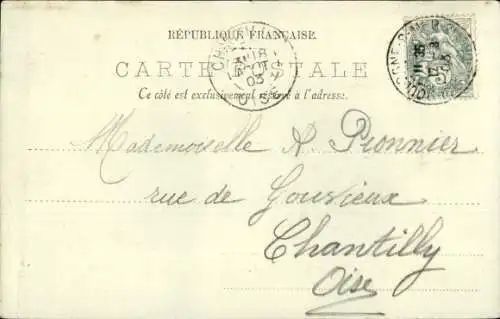 RÉPUBLIQUE FRANÇAISE.
CARTE POSTALE
Ce côté est exclusivement réservé à l'adresse.
Mademoiselle A. Pionnier
rue de Gouvieux
Chantilly
Oise
03
OISE